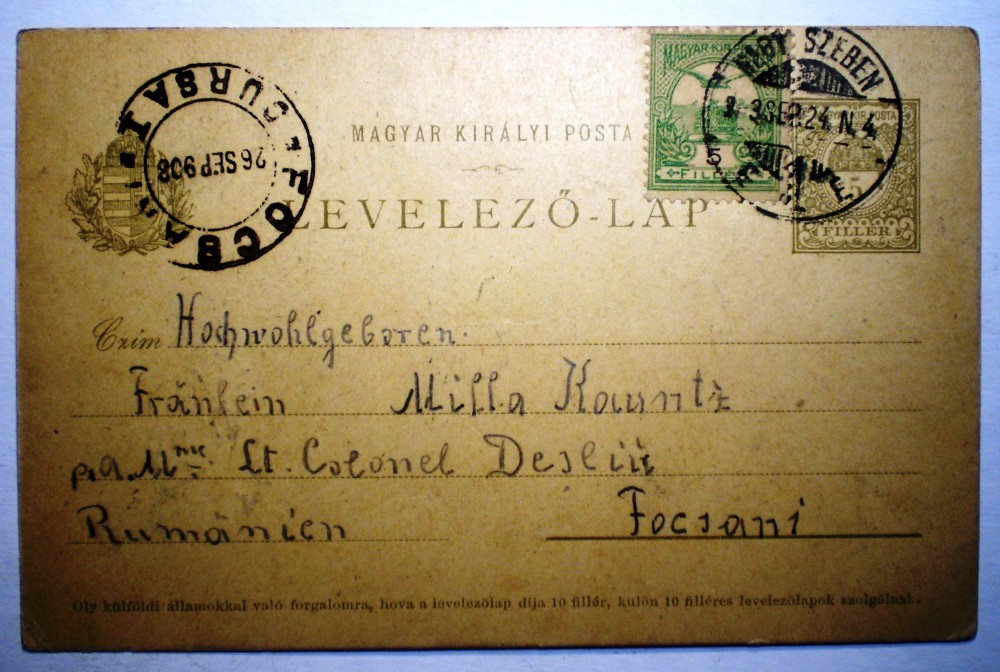 MAGYAR KIRÁLYI POSTA
LEVELEZŐ-LAP
FOCSANI
CURSA I
26 SEP 908
MAGYAR·KIR.
5
FILLÉR
NAGY SZEBEN
908 SEP 24 N. 4
5
FILLÉR
Czim Hochwohlgeboren.
Fräulein Milla Kauntz
p.A. Mme. Lt. Colonel Desliu
Rumänien Focsani
Oly külföldi államokkal való forgalomra, hova a levelezőlap dija 10 fillér, külön 10 filléres levelezőlapok szolgálnak.